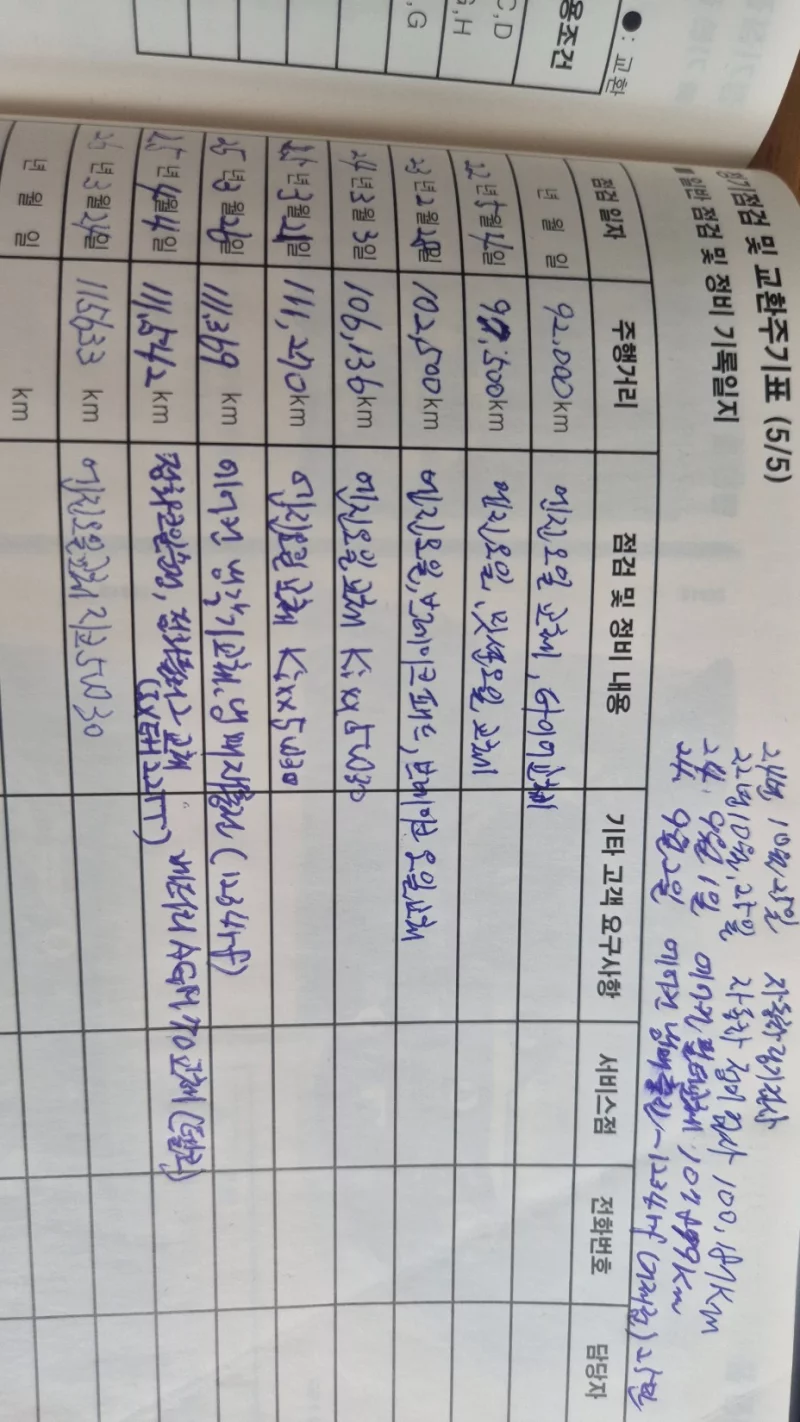 ●: 교환
용조건
C, D
G, H
, G
정기점검 및 교환주기표 (5/5)
■ 일반 점검 및 정비 기록일지
21년 10월 25일 자동차 정기검사
22년 10월, 25일 자동차 정기검사 100,187km
24. 9월 1일 에어컨 필터교체
24 9월 2일 에어컨 냉매
점검 일자 주행거리 점검 및 정비 내용 기타 고객 요구사항 서비스점 전화번호 담당자
년 월 일 92,000km 엔진오일 교체, 타이어교체
22년 5월 일 98,500km 엔진오일, 밋션오일 교체
23년 2월 28일 102,500km 엔진오일, 브레이크패드, 브레이크 오일교체
24년 3월 3일 106,136km 엔진오일교체 Kixx 5W30
25년 3월 21일 111,270km 엔진오일교체 Kixx 5W30
25년 3월 일 111,369 km 에어컨 냉각기교체, 냉매
25년 4월 4일 111,542km 점화코일, 점화플러그 교체
배터리 AGM 70 교체
년 3월 일 115633 km 엔진오일교체 지크 5W30
년 월 일 km